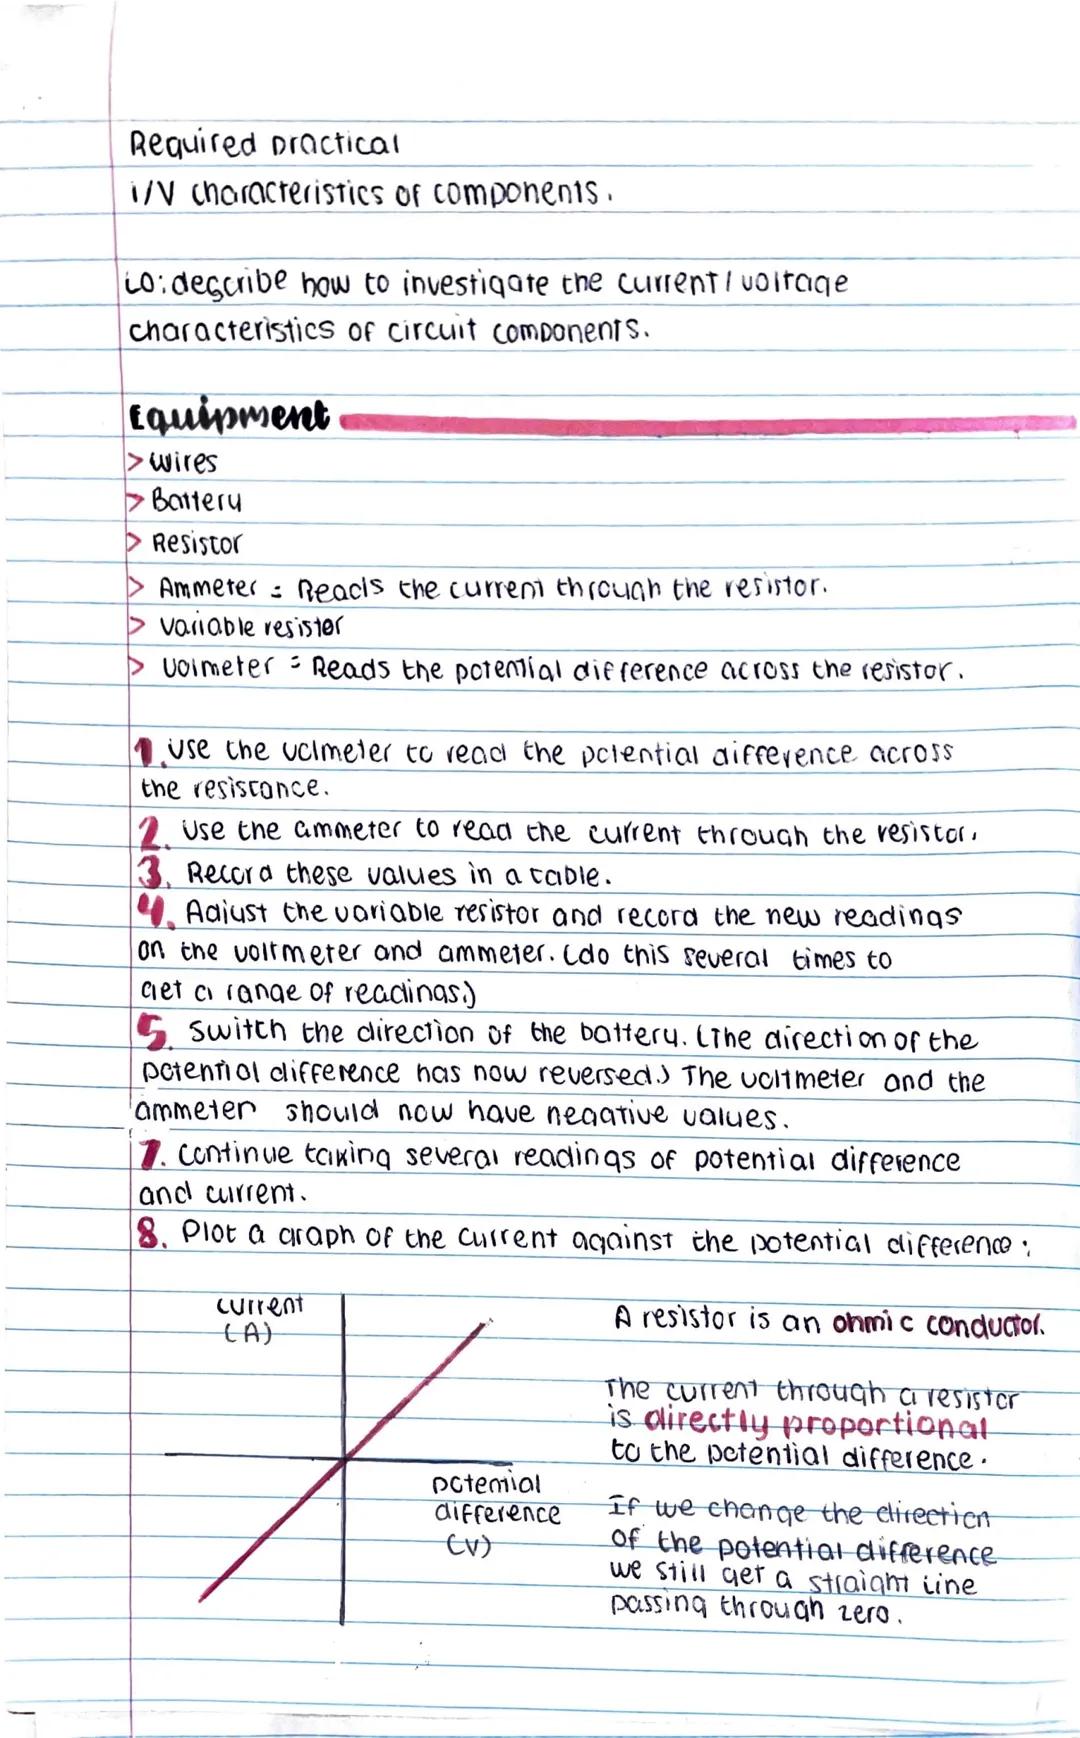 Required practical
i/V characteristics of components.
LO: describe how to investigate the current/voltage
characteristics of circuit components.
Equipment
> wires
> Battery
> Resistor
> Ammeter = Reads the current through the resistor.
> variable resistor
> Volmeter = Reads the potential difference across the resistor.
1. Use the volmeter to read the potential difference across
the resistance.
2. Use the ammeter to read the current through the resistor.
3. Record these values in a table.
4. Adjust the variable resistor and record the new readings
on the voltmeter and ammeter. (do this several times to
get a range of readings.)
5. Switch the direction of the battery. (The direction of the
potential difference has now reversed.) The voltmeter and the
ammeter should now have negative values.
7. Continue taking several readings of potential difference
and current.
8. Plot a graph of the current against the potential difference:
current
(A)
potential
difference
(V)
A resistor is an ohmic conductor.
The current through a resistor
is directly proportional
to the potential difference.
If we change the direction
of the potential difference
we still get a straight line
passing through zero.